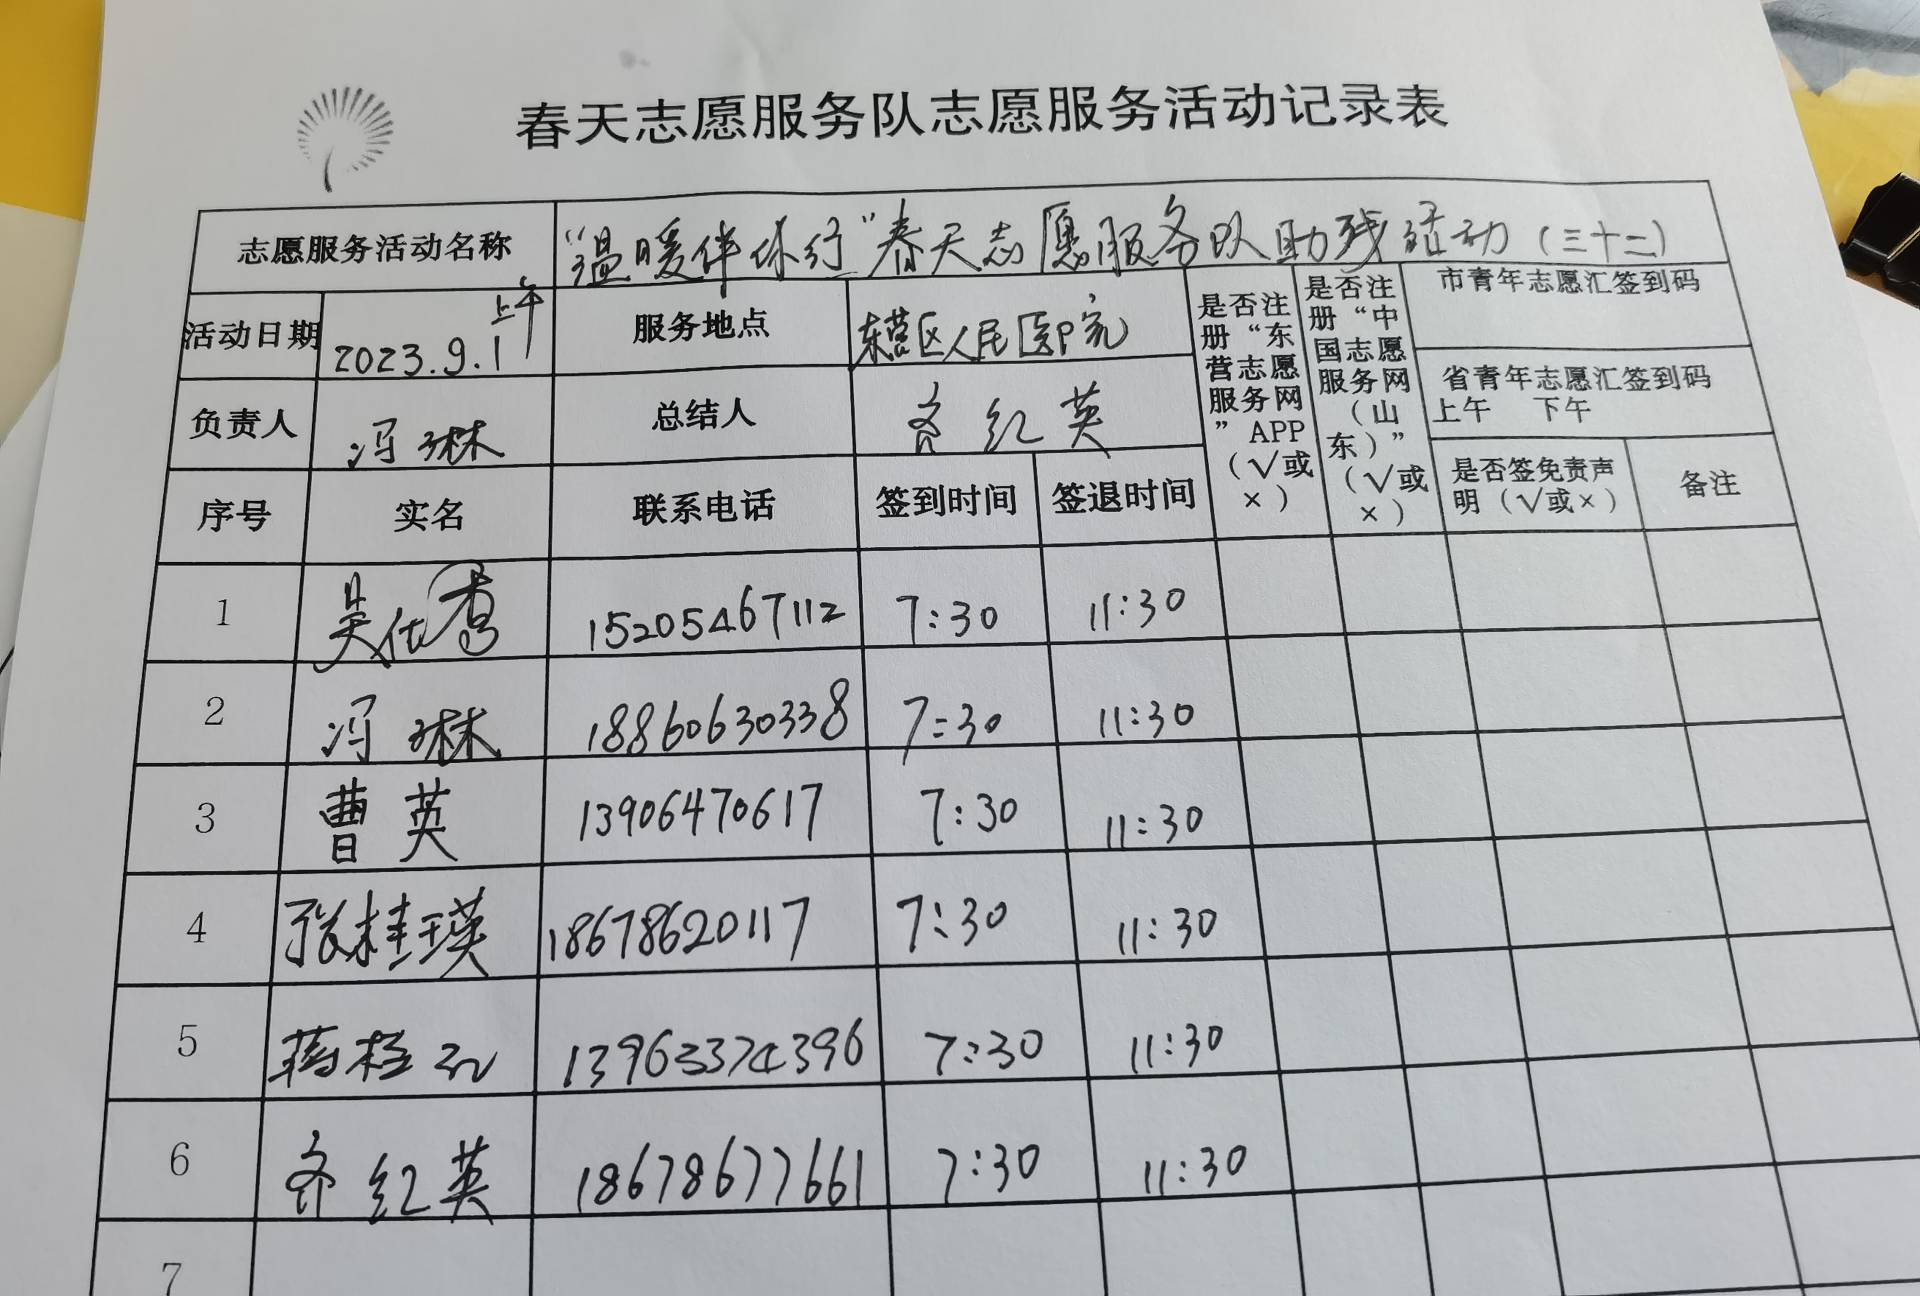 春天志愿服务队志愿服务活动记录表
志愿服务活动名称 “温暖伴你行”春天志愿服务队助残活动（三十二）
活动日期 2023.9.1 上午 服务地点 东营区人民医院
负责人 冯琳 总结人 齐红英
是否注册“东营志愿服务网”APP（√或×）
是否注册“中国志愿服务网（山东）”（√或×）
市青年志愿汇签到码
省青年志愿汇签到码
上午 下午
序号 实名 联系电话 签到时间 签退时间 是否签免责声明（√或×） 备注
1 吴仕香 15205467112 7:30 11:30
2 冯琳 18860630338 7:30 11:30
3 曹英 13906470617 7:30 11:30
4 张桂瑛 18678620117 7:30 11:30
5 蒋桂 13963374396 7:30 11:30
6 齐红英 18678677661 7:30 11:30
7